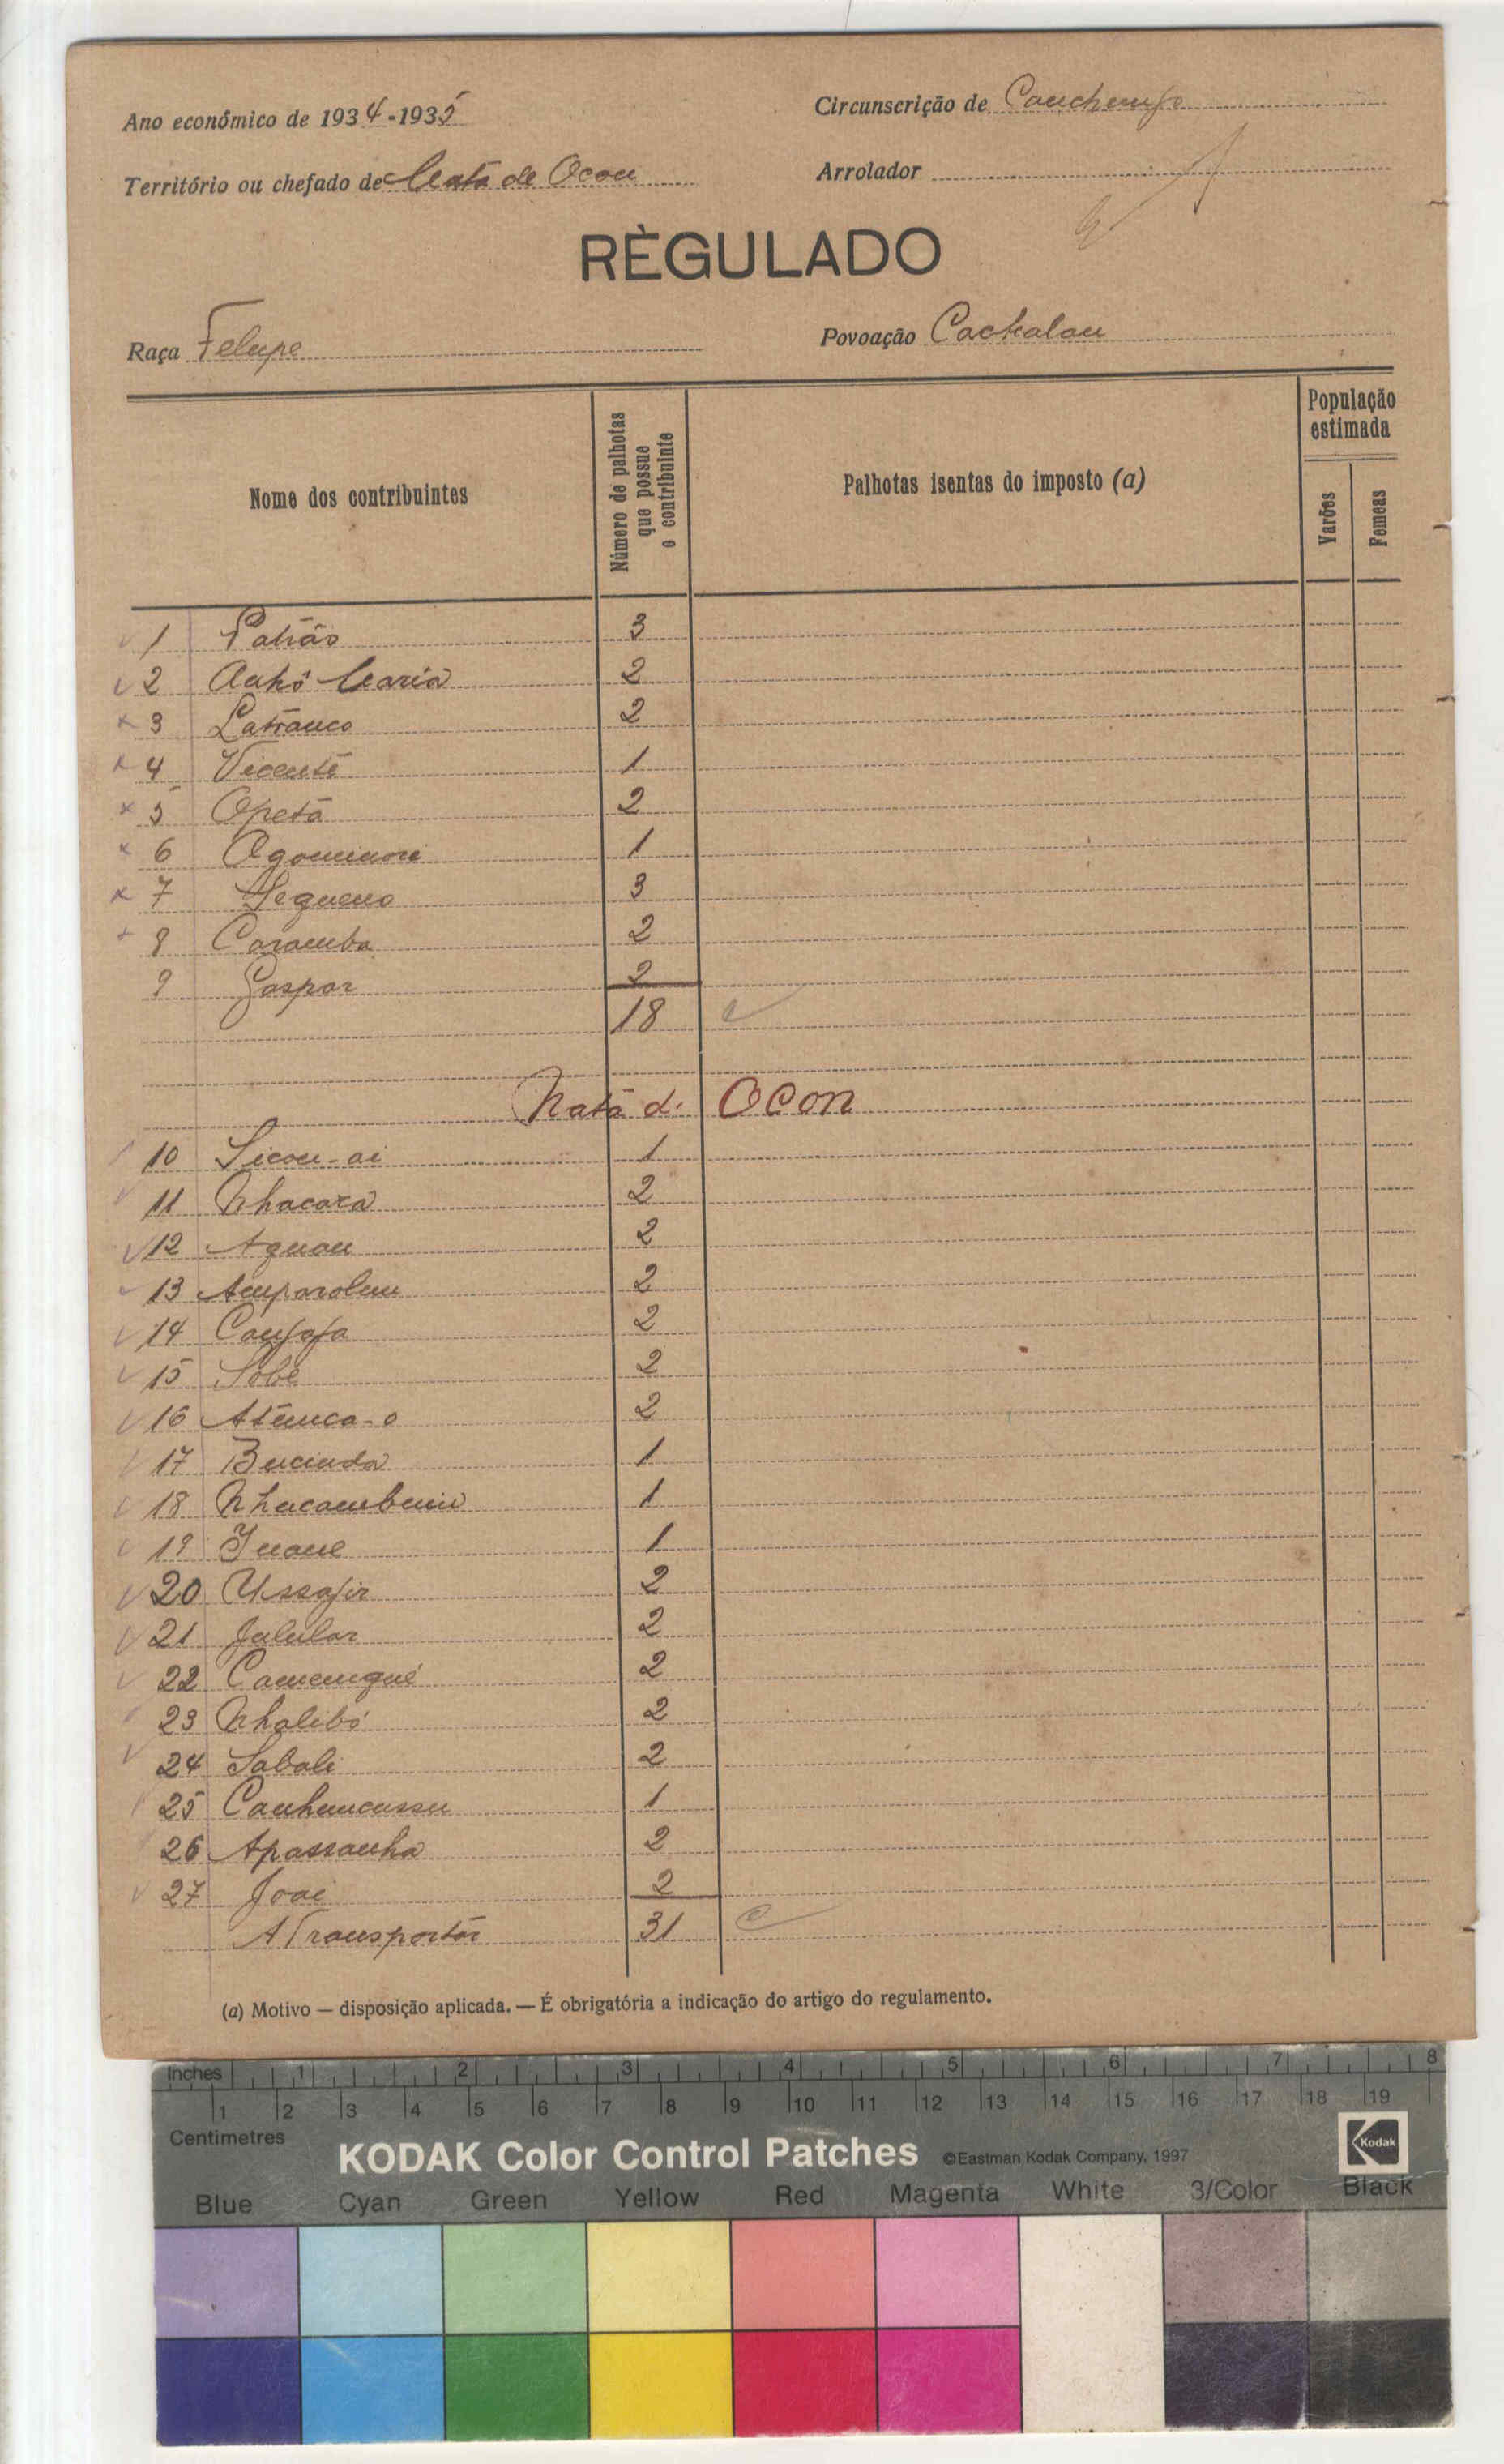 Ano económico de 1934-1935
Circunscrição de Canchungo
Território ou chefado de Mata de Ocou
Arrolador
RÈGULADO
Raça Felupe
Povoação Cachalou
Nome dos contribuintes
Número de palhotas que possue o contribuinte
Palhotas isentas do imposto (a)
População estimada
Varões
Femeas
1 Patrão 3
2 Maria 2
3 Latranco 2
4 Vicente 1
5 Opetá 2
6 1
7 3
8 Caramba 2
9 Gaspar 2
18
Mata d. Ocon
10 Sicou-ai 1
11 Nhacara 2
12 Aguau 2
13 Amparolum 2
14 2
15 Sobé 2
16 2
17 1
18 1
19 1
20 Ussafir 2
21 Jalular 2
22 2
23 Nhalibó 2
24 Sabali 2
25 1
26 Apassanha 2
27 Joai 2
A Transportar 31
(a) Motivo — disposição aplicada. — É obrigatória a indicação do artigo do regulamento.
Inches 1 2 3 4 5 6 7 8
1 2 3 4 5 6 7 8 9 10 11 12 13 14 15 16 17 18 19
Centimetres
KODAK Color Control Patches ©Eastman Kodak Company, 1997 Kodak
Blue Cyan Green Yellow Red Magenta White 3/Color Black